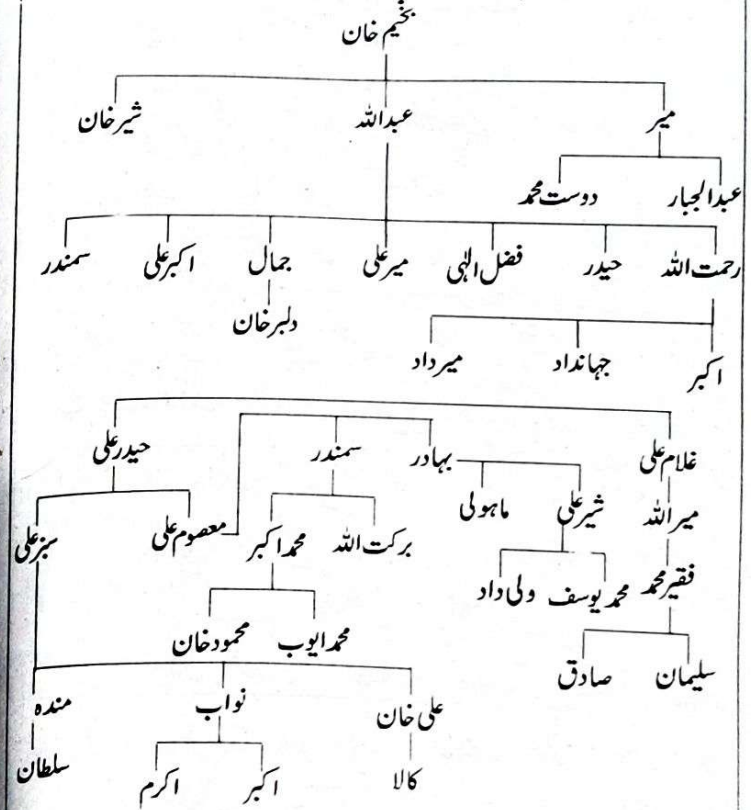 بخیم خان
میر عبداللہ شیر خان
عبدالجبار دوست محمد
رحمت اللہ حیدر فضل الٰہی میر علی جمال اکبر علی سمندر
دلبر خان
اکبر جہانداد میر داد
غلام علی بہادر سمندر حیدر علی
میر اللہ شیر علی ماہولی برکت اللہ محمد اکبر معصوم علی سبز علی
فقیر محمد محمد یوسف ولی داد
محمد ایوب محمود خان
سلیمان صادق
علی خان نواب مندہ
کالا اکبر اکرم سلطان